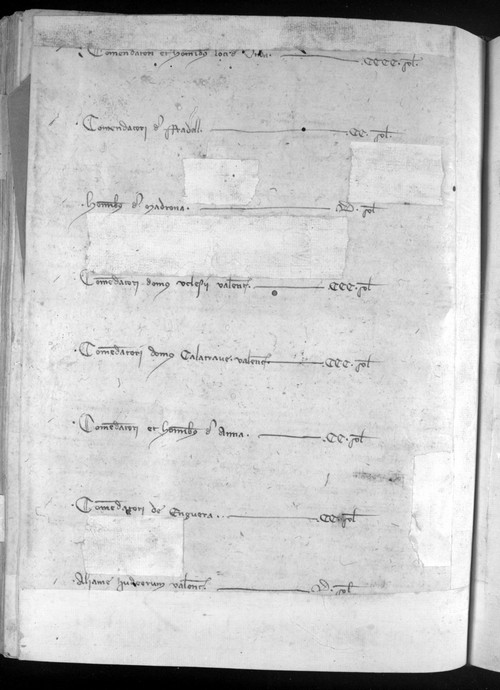 Comendatori et hominibz loci de ———— .CCCC. sol.
.Comendatori d' ———— .CC. sol.
.hominibz d' Madrona. ———— .D. sol
Comendatori domus Uclesii valent. ———— .CCC. sol
.Comendatori domus Calatrave. valent. ———— .CCC. sol
.Comendatori et hominibz d' Anna. ———— .CC. sol
.Comendatori de Enguera. ———— .CC. sol
.Aljame judeorum valent. ———— .D. sol